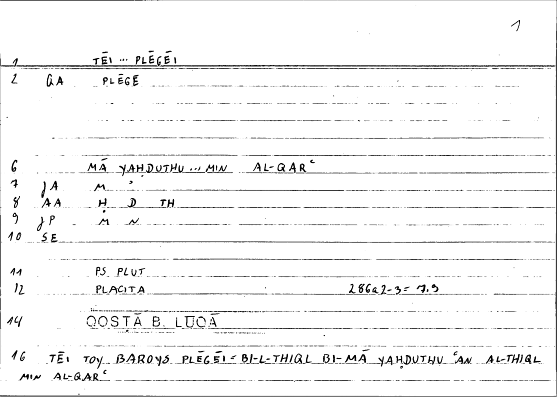 1
1 TĒI ... PLĒGĒI
2 QA PLĒGĒ
6 MĀ YAḤDUTHU ... MIN AL-QARʿ
7 JA M ʾ
8 AA Ḥ D TH
9 JP M N
10 SE
11 PS. PLUT
12 PLACITA 286a2-3 = 7.9
14 QOSṬĀ B. LŪQĀ
16 TĒI TOY BAROYS PLĒGĒI = BI-L-THIQL BI-MĀ YAḤDUTHU ʿAN AL-THIQL
MIN AL-QARʿ